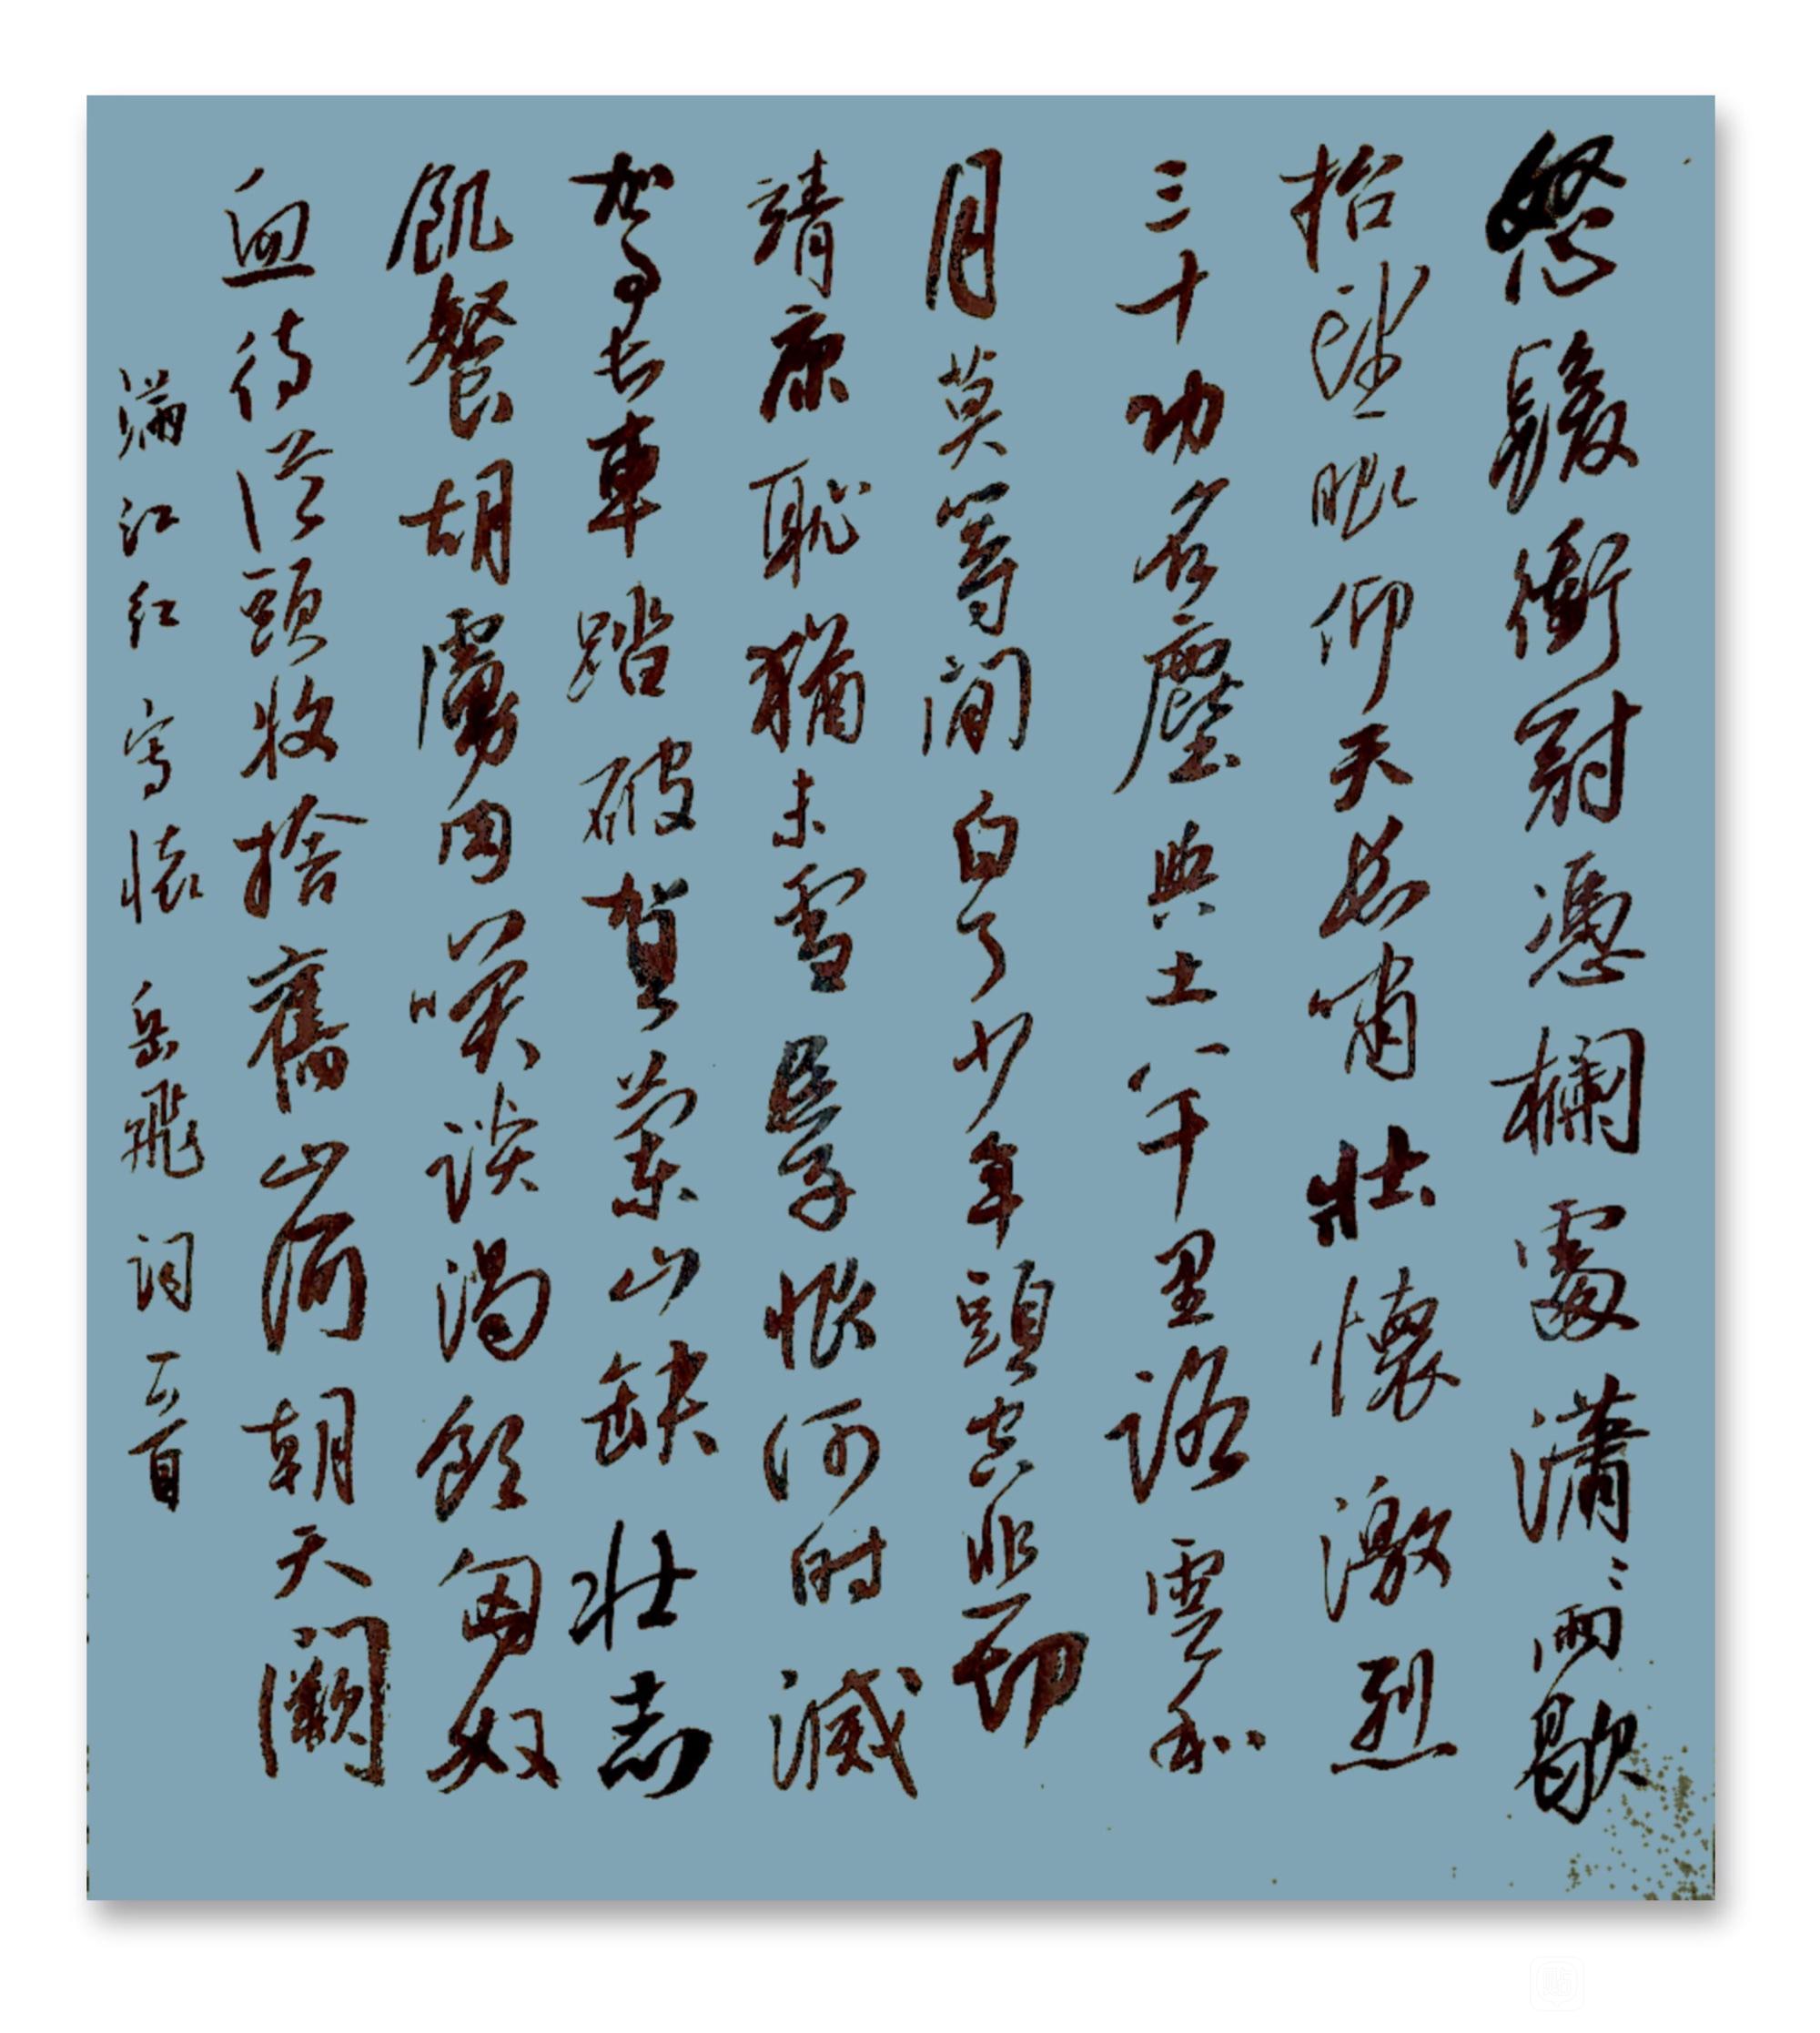 怒髮衝冠憑欄處瀟〻雨歇
抬望眼仰天長嘯壯懷激烈
三十功名塵與土八千里路雲和
月莫等閒白了少年頭空悲切
靖康恥猶未雪臣子恨何時滅
駕長車踏破賀蘭山缺壯志
飢餐胡虜肉笑談渴飲匈奴
血待從頭收拾舊山河朝天闕
滿江紅寫懷 岳飛詞一首